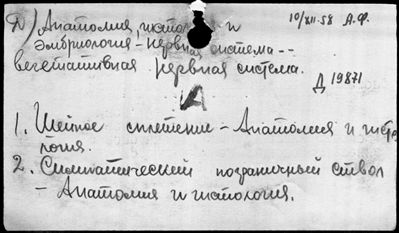 Д) Анатомия, гисто и
10/XII-58 А.Ф.
эмбриология - нервная система --
вегетативная нервная система.
Д 19871
1. Шейное сплетение - Анатомия и гисто
логия.
2. Симпатический пограничный ствол
- Анатомия и гистология.